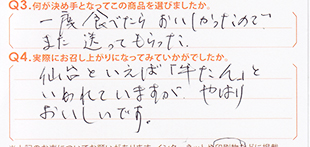 Q3.何が決め手となってこの商品を選びましたか。
一度食べたらおいしかったので
また送ってもらった。
Q4.実際にお召し上がりになってみていかがでしたか。
仙台といえば「牛たん」と
いわれていますが やはり
おいしいです。